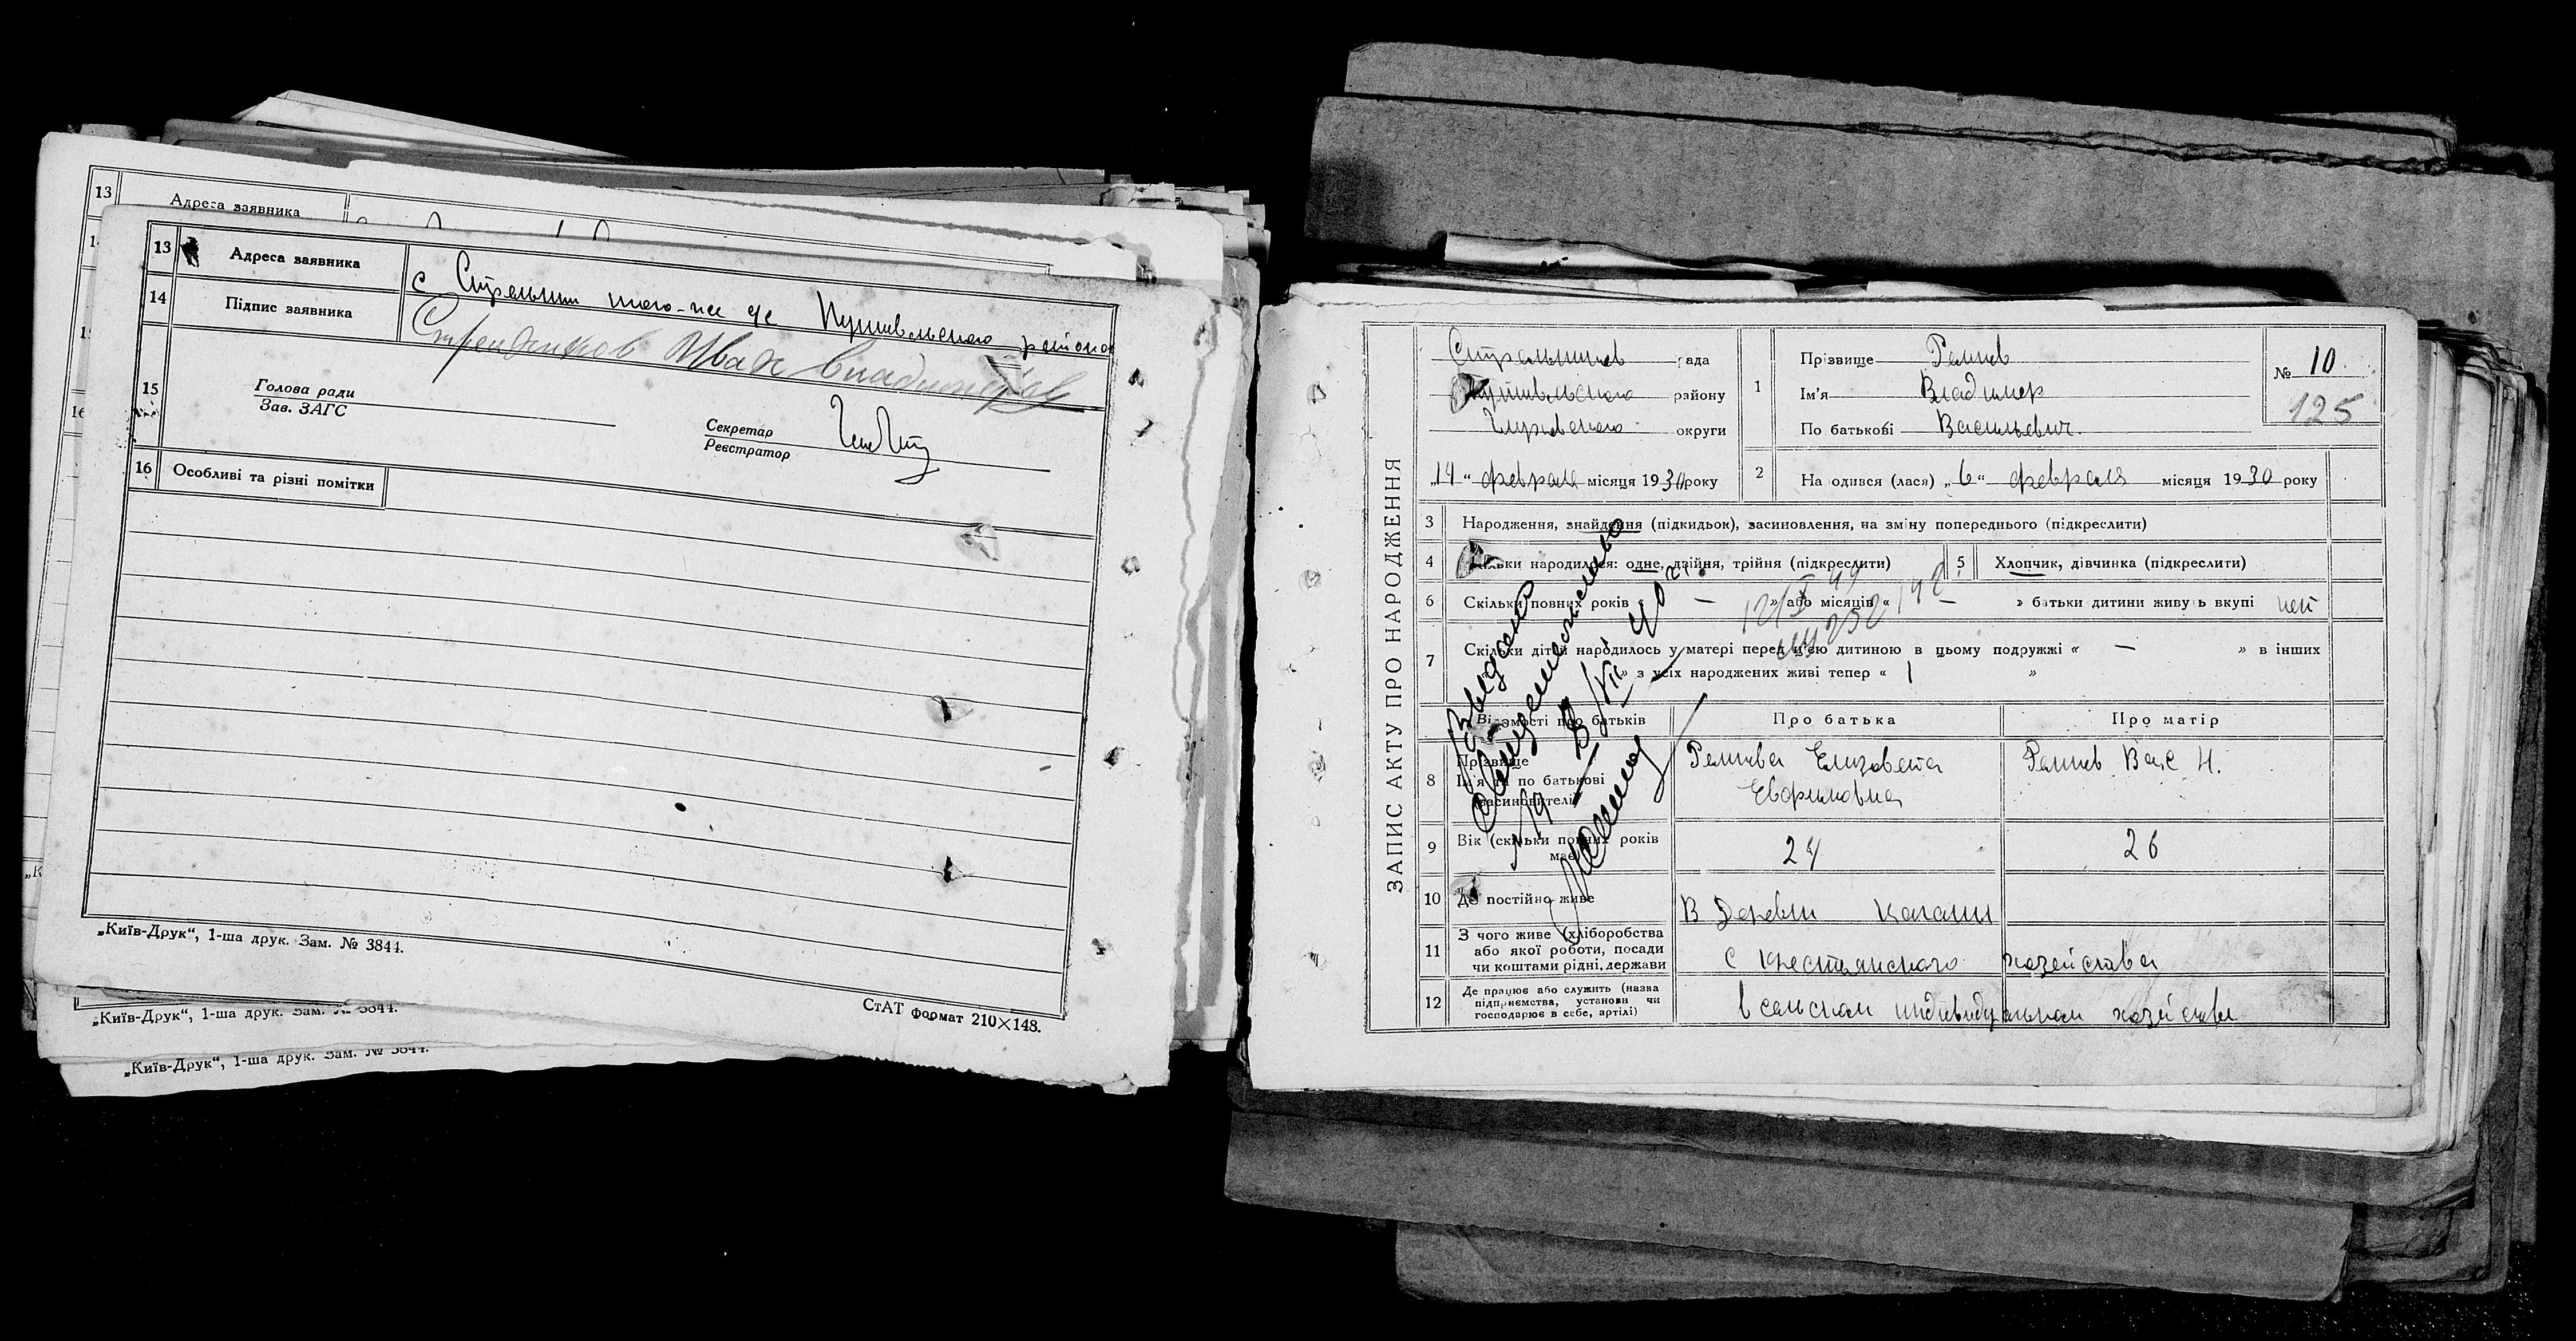 13 Адреса заявника
13 Адреса заявника с того-же с/с Путивльского района
14 Підпис заявника Иван
15 Голова ради
Зав. ЗАГС
Секретар
Реєстратор
16 Особливі та різні помітки
„Київ-Друк“, 1-ша друк. Зам. № 3844.
СтАТ формат 210×148.
„Київ-Друк“, 1-ша друк. Зам. № 3844.
„Київ-Друк“, 1-ша друк. Зам. № 3844.
ЗАПИС АКТУ ПРО НАРОДЖЕННЯ
рада
Путивльского району
Глуховского округи
„14“ февраля місяця 1930 року
1 Прізвище
Ім'я Владимер
По батькові Васильевич.
№ 10
125
2 Народився (лася) „6“ февраля місяця 1930 року
3 Народження, знайдення (підкидьок), засиновлення, на зміну попереднього (підкреслити)
4 Скільки народилося: одне, двійня, трійня (підкреслити)
5 Хлопчик, дівчинка (підкреслити)
6 Скільки повних років « — » або місяців « — » батьки дитини живуть вкупі нет
7 Скільки дітей народилось у матері перед цією дитиною в цьому подружжі « — » в інших
» з усіх народжених живі тепер « 1 »
Відомості про батьків
Про батька
Про матір
8 Прізвище
Ім'я та по батькові
(засиновителів)
Елизавета
Евфимовна
Вас Н.
9 Вік (скільки повних років має)
24
26
10 Де постійно живе
В деревни
11 З чого живе (хліборобства
або якої роботи, посади
чи коштами рідні, держави
С крестьянского хозейства
12 Де працює або служить (назва
підприємства, установи чи
господарює в себе, артілі)
в сельском индивидуальном хозействе